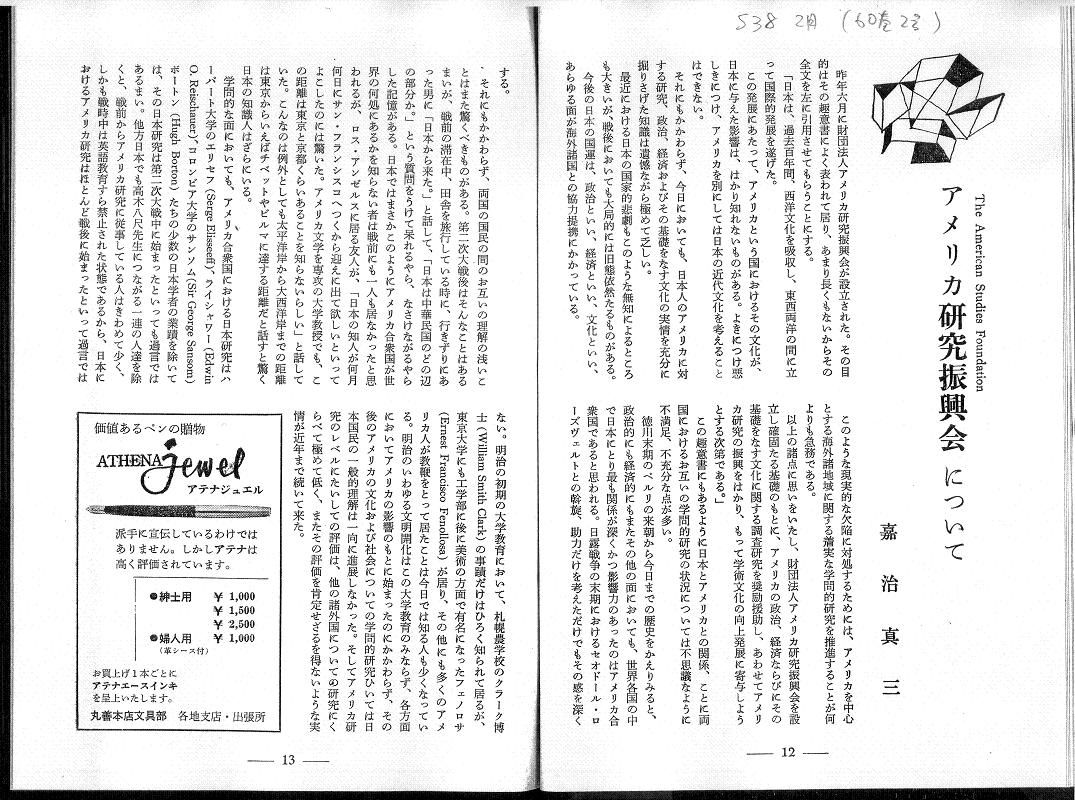 S38 2月 (60巻2号)
The American Studies Foundation
アメリカ研究振興会について
嘉治真三
昨年六月に財団法人アメリカ研究振興会が設立された。その目
的はその趣意書によく表われて居り、あまり長くもないからその
全文を左に引用させてもらうことにする。
「日本は、過去百年間、西洋文化を吸収し、東西両洋の間に立
って国際的発展を遂げた。
この発展にあたって、アメリカという国におけるその文化が、
日本に与えた影響は、はかり知れないものがある。よきにつけ悪
しきにつけ、アメリカを別にしては日本の近代文化を考えること
はできない。
それにもかかわらず、今日においても、日本人のアメリカに対
する研究、政治、経済およびその基礎をなす文化の実情を充分に
掘りさげた知識は遺憾ながら極めて乏しい。
最近における日本の国家的悲劇もこのような無知によるところ
も大きいが、戦後においても大局的には旧態依然たるものがある。
今後の日本の国運は、政治といい、経済といい、文化といい、
あらゆる面が海外諸国との協力提携にかかっている。
このような現実的な欠陥に対処するためには、アメリカを中心
とする海外諸地域に関する着実な学問的研究を推進することが何
よりも急務である。
以上の諸点に思いをいたし、財団法人アメリカ研究振興会を設
立し確固たる基礎のもとに、アメリカの政治、経済ならびにその
基礎をなす文化に関する調査研究を奨励援助し、あわせてアメリ
カ研究の振興をはかり、もって学術文化の向上発展に寄与しよう
とする次第である。」
この趣意書にもあるように日本とアメリカとの関係、ことに両
国におけるお互いの学問的研究の状況については不思議なように
不満足、不充分な点が多い。
徳川末期のペルリの来朝から今日までの歴史をかえりみると、
政治的にも経済的にもまたその他の面においても、世界各国の中
で日本にとり最も関係が深くかつ影響力のあったのはアメリカ合
衆国であると思われる。日露戦争の末期におけるセオドール・ロ
ーズヴェルトとの斡旋、助力だけを考えただけでもその感を深く
— 12 —
する。
それにもかかわらず、両国の国民の間のお互いの理解の浅いこ
とはまた驚くべきものがある。第二次大戦後はそんなことはある
まいが、戦前の滞在中、田舎を旅行している時に、行きずりにあ
った男に「日本から来た。」と話して、「日本は中華民国のどの辺
の部分か。」という質問をうけて呆れるやら、なさけながるやら
した記憶がある。日本ではまさかこのようにアメリカ合衆国が世
界の何処にあるかを知らない者は戦前にも一人も居なかったと思
われるが、ロス・アンゼルスに居る友人が、「日本の知人が何月
何日にサン・フランシスコへつくから迎えに出て欲しいといって
よこしたのには驚いた。アメリカ文学を専攻の大学教授でも、こ
の距離は東京と京都くらいあることを知らないらしい」と話して
いた。こんなのは例外としても太平洋岸から大西洋岸までの距離
は東京からいえばチベットやビルマに達する距離だと話すと驚く
日本の知識人はざらにいる。
学問的な面においても、アメリカ合衆国における日本研究はハ
ーバート大学のエリセフ (Serge Elisseeff)、ライシャワー (Edwin
O. Reischauer)、コロンビヤ大学のサンソム (Sir George Sansom)
ボートン (Hugh Borton) たちの少数の日本学者の業蹟を除いて
は、その日本研究は第二次大戦中に始まったといっても過言では
あるまい。他方日本でも高木八尺先生につながる一連の人達を除
くと、戦前からアメリカ研究に従事している人はきわめて少く、
しかも戦時中は英語教育すら禁止された状態であるから、日本に
おけるアメリカ研究はほとんど戦後に始まったといって過言では
ない。明治の初期の大学教育において、札幌農学校のクラーク博
士 (William Smith Clark) の事蹟だけはひろく知られて居るが、
東京大学にも工学部に後に美術の方面で有名になったフェノロサ
(Ernest Francisco Fenollosa) が居り、その他にも多くのアメ
リカ人が教鞭をとって居たことは今日では知る人も少くなってい
る。明治のいわゆる文明開化はこの大学教育のみならず、各方面
においてアメリカの影響のもとに始まったのにかかわらず、その
後のアメリカの文化および社会についての学問的研究ひいては日
本国民の一般的理解は一向に進展しなかった。そしてアメリカ研
究のレベルにたいしての評価は、他の諸外国についての研究にく
らべて極めて低く、またその評価を肯定せざるを得ないような実
情が近年まで続いて来た。
価値あるペンの贈物
ATHENA jewel
アテナジュエル
派手に宣伝しているわけでは
ありません。しかしアテナは
高く評価されています。
●紳士用 ¥ 1,000
¥ 1,500
¥ 2,500
●婦人用 ¥ 1,000
(革シース付)
お買上げ1本ごとに
アテナエースインキ
を呈上いたします。
丸善本店文具部 各地支店・出張所
— 13 —